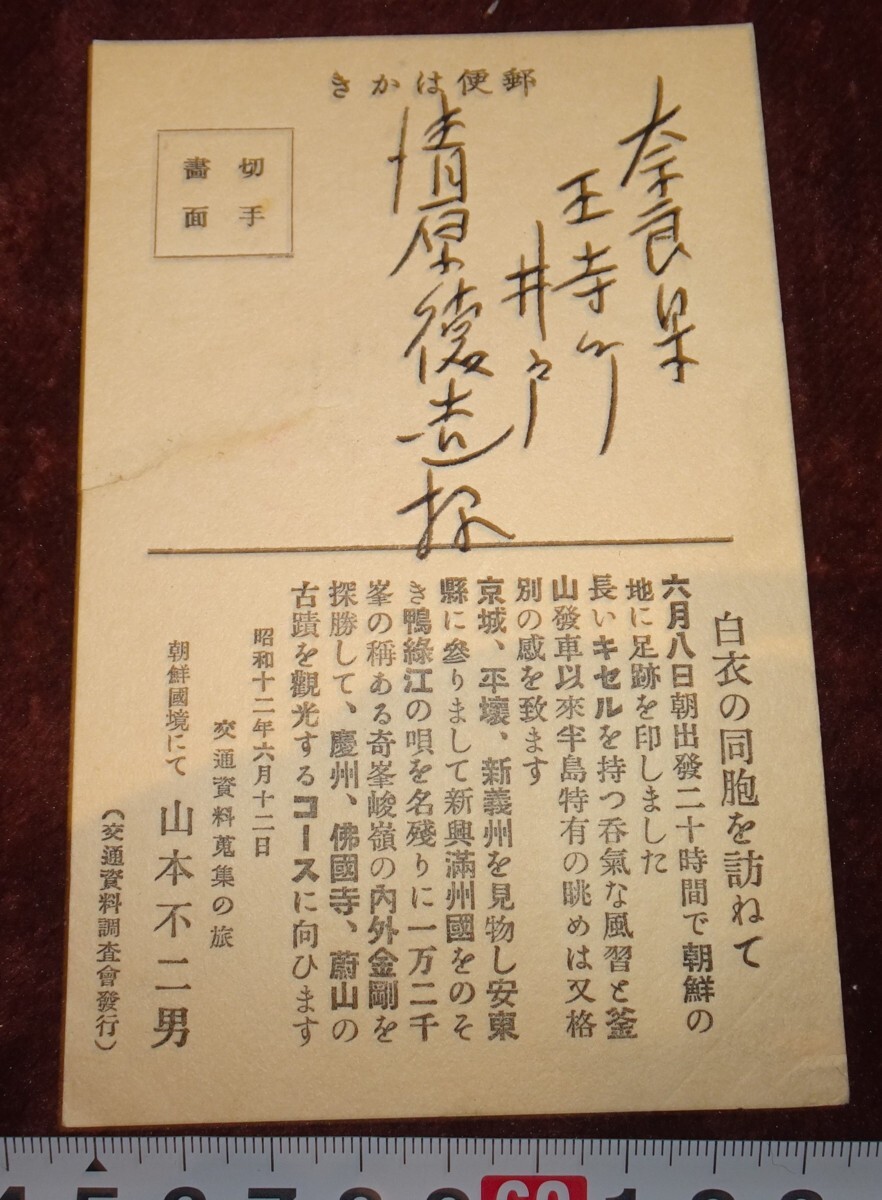 郵便はかき
切手
畫面
奈良県
王寺町
井戸
清原徳造様
白衣の同胞を訪ねて
六月八日朝出發二十時間で朝鮮の
地に足跡を印しました
長いキセルを持つ呑氣な風習と釜
山發車以來半島特有の眺めは又格
別の感を致ます
京城、平壤、新義州を見物し安東
縣に參りまして新興滿州國をのそ
き鴨綠江の唄を名殘りに一万二千
峯の稱ある奇峯峻嶺の內外金剛を
探勝して、慶州、佛國寺、蔚山の
古蹟を觀光するコースに向ひます
昭和十二年六月十二日
交通資料蒐集の旅
朝鮮國境にて 山本不二男
(交通資料調査會發行)
5 6 7 8 9 60 1 2 3